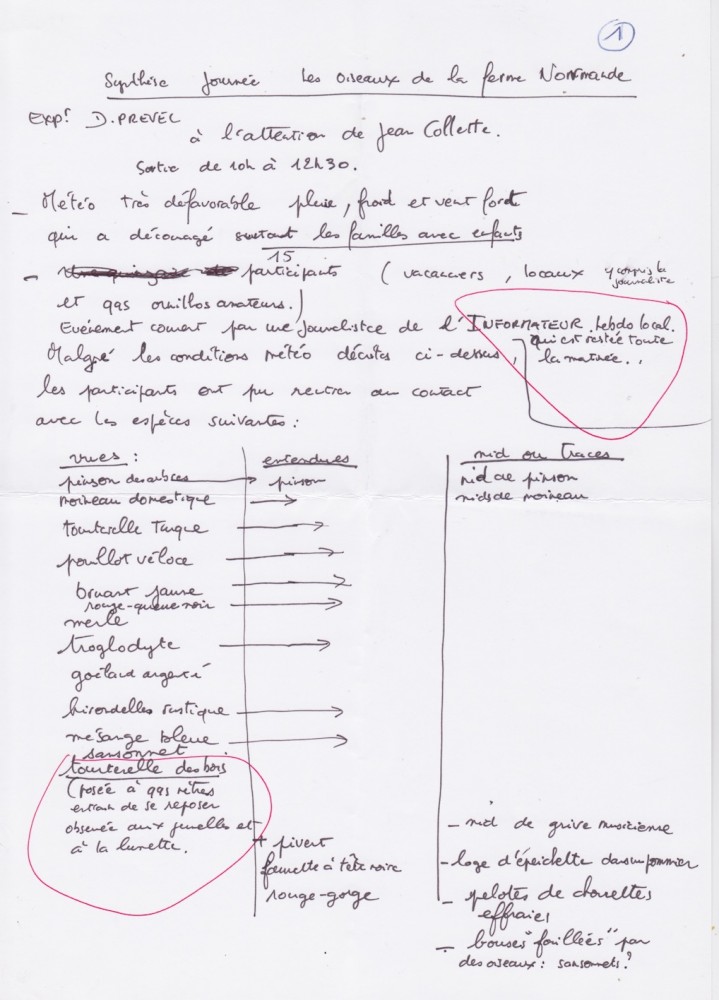 1
Synthèse Journée Les oiseaux de la ferme Normande
Expr D. PREVEL
à l'attention de Jean Collette.
Sortie de 10h à 12h30.
- Météo très défavorable pluie, froid et vent fort
qui a découragé surtout les familles avec enfants
- 15 participants (vacanciers, locaux y compris la journaliste
et qqs ornithos amateurs.)
Evénement couvert par une journaliste de l'INFORMATEUR. hebdo local.
qui est restée toute
la matinée..
Malgré les conditions météo décrites ci-dessus,
les participants ont pu rentrer au contact
avec les espèces suivantes :
vues :
pinson des arbres →
moineau domestique →
tourterelle Turque →
pouillot véloce →
bruant jaune →
rouge-queue noir →
merle
troglodyte →
goéland argenté
hirondelles rustique →
mésange bleue →
sansonnet
tourterelle des bois
(posée à qqs mètres
entrain de se reposer
observée aux jumelles et
à la lunette.
entendues
pinson
+ pivert
fauvette à tête noire
rouge-gorge
nid ou traces
nid de pinson
nids de moineau
- nid de grive musicienne
- loge d'épeichette dans un pommier
- pelotes de chouettes
effraies
- bouses "fouillées" par
des oiseaux : sansonnets ?